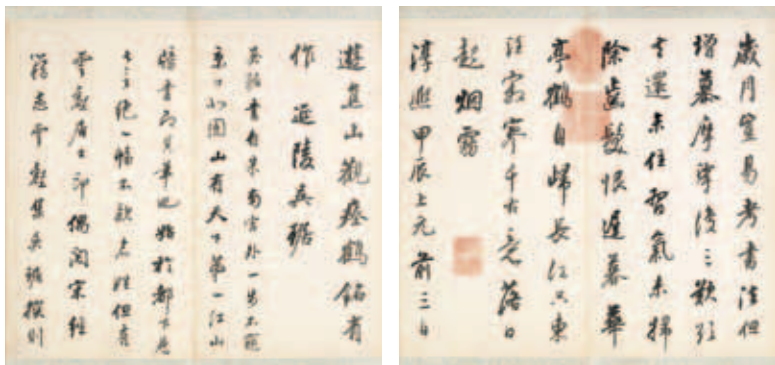 歲月豈易考書法但
增慕摩挲復三歎欲
去還未住習氣未掃
除齒髮恨遲暮華
亭鶴自歸長江只東
注寂寥千古意落日
起烟霧
淳熙甲辰上元前三日
遊焦山觀瘞鶴銘有
作 延陵吳琚
吳琚書自米南宮外一步不窺
京口北固山有天下第一江山
牓書即其筆也 於都下
絶一幅不款名姓但有
雲壑居士印偶閱宋經
籍志雲壑集吳琚撰則